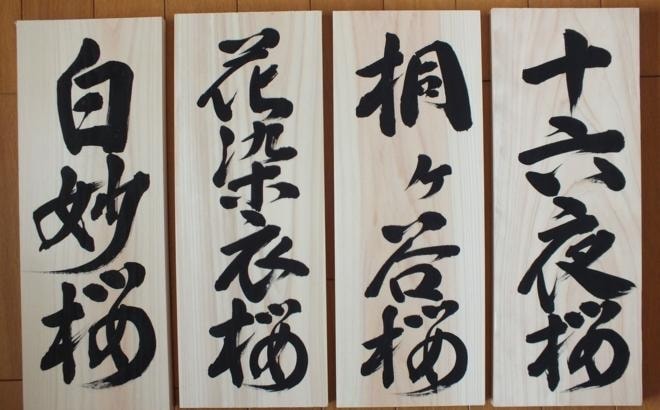 十六夜桜
桐ヶ谷桜
花染衣桜
白妙桜